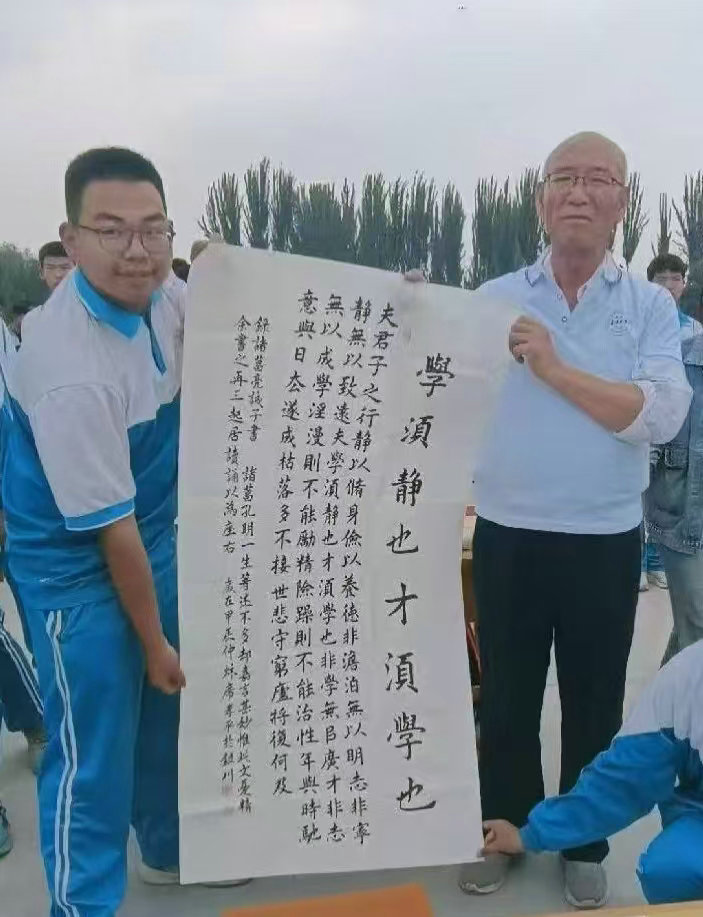 學須靜也才須學也
夫君子之行靜以脩身儉以養德非澹泊無以明志非寧
靜無以致遠夫學須靜也才須學也非學無以廣才非志
無以成學淫漫則不能勵精險躁則不能治性年與時馳
意與日去遂成枯落多不接世悲守窮廬將復何及
錄諸葛亮誡子書 諸葛孔明一生著述不多却嘉言其妙惟此文憂精
余書之再三起居讀誦以為座右 歲在甲辰仲秌 於銀川